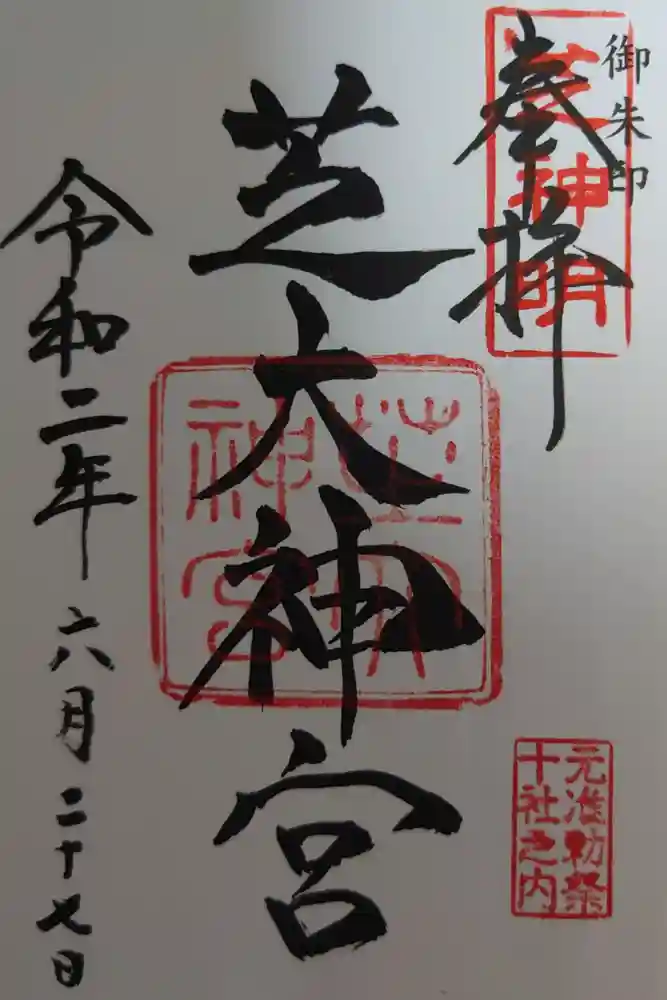 御朱印
奉拝
芝神明
芝大神宮
芝大神宮
元准勅祭
十社之内
令和二年六月二十七日